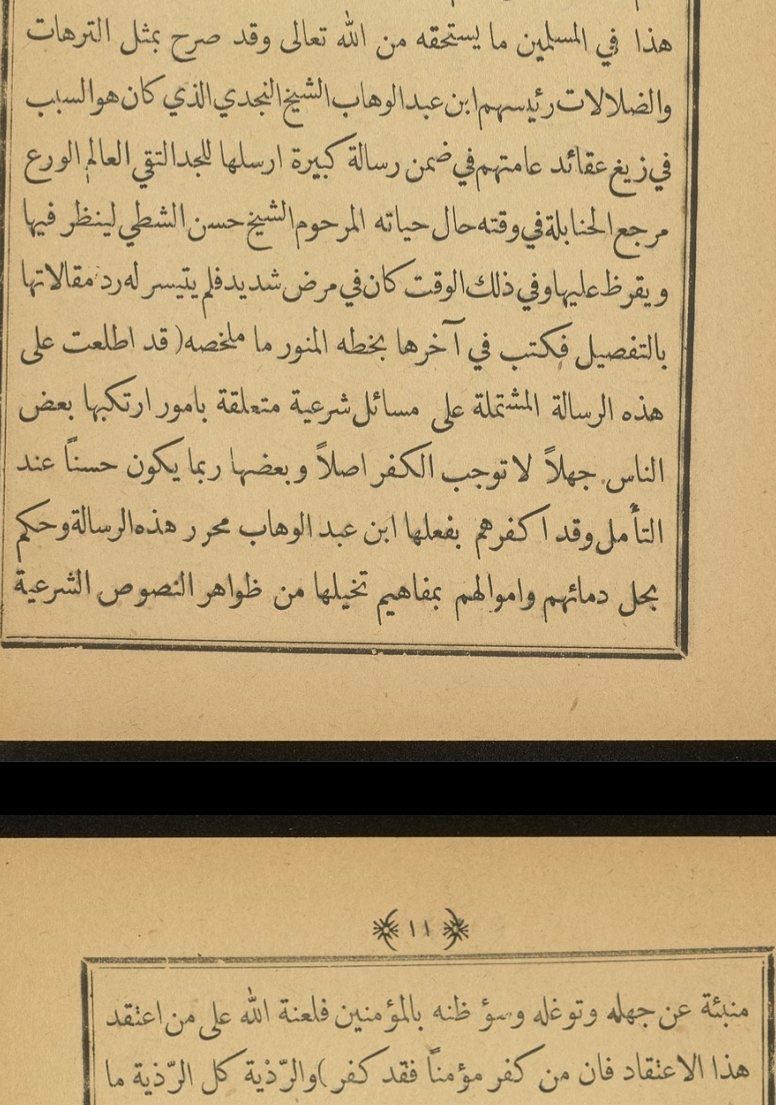 هذا في المسلمين ما يستحقه من الله تعالى وقد صرح بمثل الترهات
والضلالات رئيسهم ابن عبد الوهاب الشيخ النجدي الذي كان هو السبب
في زيغ عقائد عامتهم في ضمن رسالة كبيرة ارسلها للجد التقي العالم الورع
مرجع الحنابلة في وقته حال حياته المرحوم الشيخ حسن الشطي لينظر فيها
ويقرظ عليها وفي ذلك الوقت كان في مرض شديد فلم يتيسر له رد مقالاتها
بالتفصيل فكتب في آخرها بخطه المنور ما ملخصه ( قد اطلعت على
هذه الرسالة المشتملة على مسائل شرعية متعلقة بامور ارتكبها بعض
الناس جهلاً لا توجب الكفر اصلاً وبعضها ربما يكون حسناً عند
التأمل وقد اكفرهم بفعلها ابن عبد الوهاب محرر هذه الرسالة وحكم
بحل دمائهم واموالهم بمفاهيم تخيلها من ظواهر النصوص الشرعية
١١
منبئة عن جهله وتوغله وسؤ ظنه بالمؤمنين فلعنة الله على من اعتقد
هذا الاعتقاد فان من كفر مؤمناً فقد كفر ) والرّذية كل الرّذية ما